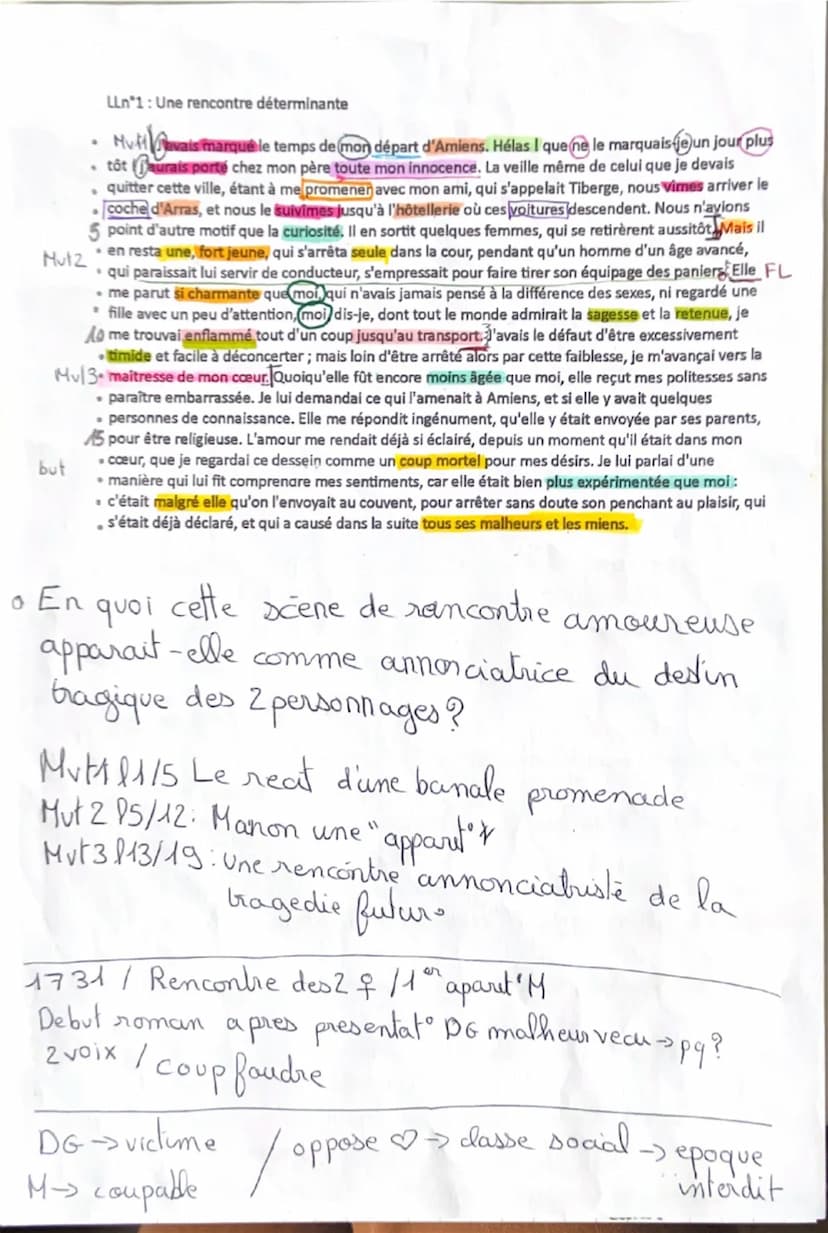 LLn°1 : Une rencontre déterminante
Mvt1 J'avais marqué le temps de mon départ d'Amiens. Hélas ! que ne le marquais-je un jour plus
tôt ! j'aurais porté chez mon père toute mon innocence. La veille même de celui que je devais
quitter cette ville, étant à me promener avec mon ami, qui s'appelait Tiberge, nous vîmes arriver le
coche d'Arras, et nous le suivîmes jusqu'à l'hôtellerie où ces voitures descendent. Nous n'avions
5 point d'autre motif que la curiosité. Il en sortit quelques femmes, qui se retirèrent aussitôt. Mais il
Mvt2 en resta une, fort jeune, qui s'arrêta seule dans la cour, pendant qu'un homme d'un âge avancé,
qui paraissait lui servir de conducteur, s'empressait pour faire tirer son équipage des paniers. Elle FL
me parut si charmante que moi, qui n'avais jamais pensé à la différence des sexes, ni regardé une
fille avec un peu d'attention, moi, dis-je, dont tout le monde admirait la sagesse et la retenue, je
10 me trouvai enflammé tout d'un coup jusqu'au transport. J'avais le défaut d'être excessivement
timide et facile à déconcerter ; mais loin d'être arrêté alors par cette faiblesse, je m'avançai vers la
Mv13 maîtresse de mon cœur. Quoiqu'elle fût encore moins âgée que moi, elle reçut mes politesses sans
paraître embarrassée. Je lui demandai ce qui l'amenait à Amiens, et si elle y avait quelques
personnes de connaissance. Elle me répondit ingénument, qu'elle y était envoyée par ses parents,
15 pour être religieuse. L'amour me rendait déjà si éclairé, depuis un moment qu'il était dans mon
but cœur, que je regardai ce dessein comme un coup mortel pour mes désirs. Je lui parlai d'une
manière qui lui fit comprendre mes sentiments, car elle était bien plus expérimentée que moi :
c'était malgré elle qu'on l'envoyait au couvent, pour arrêter sans doute son penchant au plaisir, qui
s'était déjà déclaré, et qui a causé dans la suite tous ses malheurs et les miens.
En quoi cette scène de rencontre amoureuse
apparait-elle comme annonciatrice du destin
tragique des 2 personnages ?
Mvt1 l1/5 Le recit d'une banale promenade
Mvt 2 l5/12 : Manon une "apparit°
Mvt3 l13/19 : Une rencontre annonciatriste de la
tragedie future
1731 / Rencontre des 2 ♀ / 1er aparit° M
Debut roman apres presentat° DG malheur vecu → pq ?
2 voix / coup foudre
DG → victime / oppose ♡ → classe social → epoque
M → coupable interdit